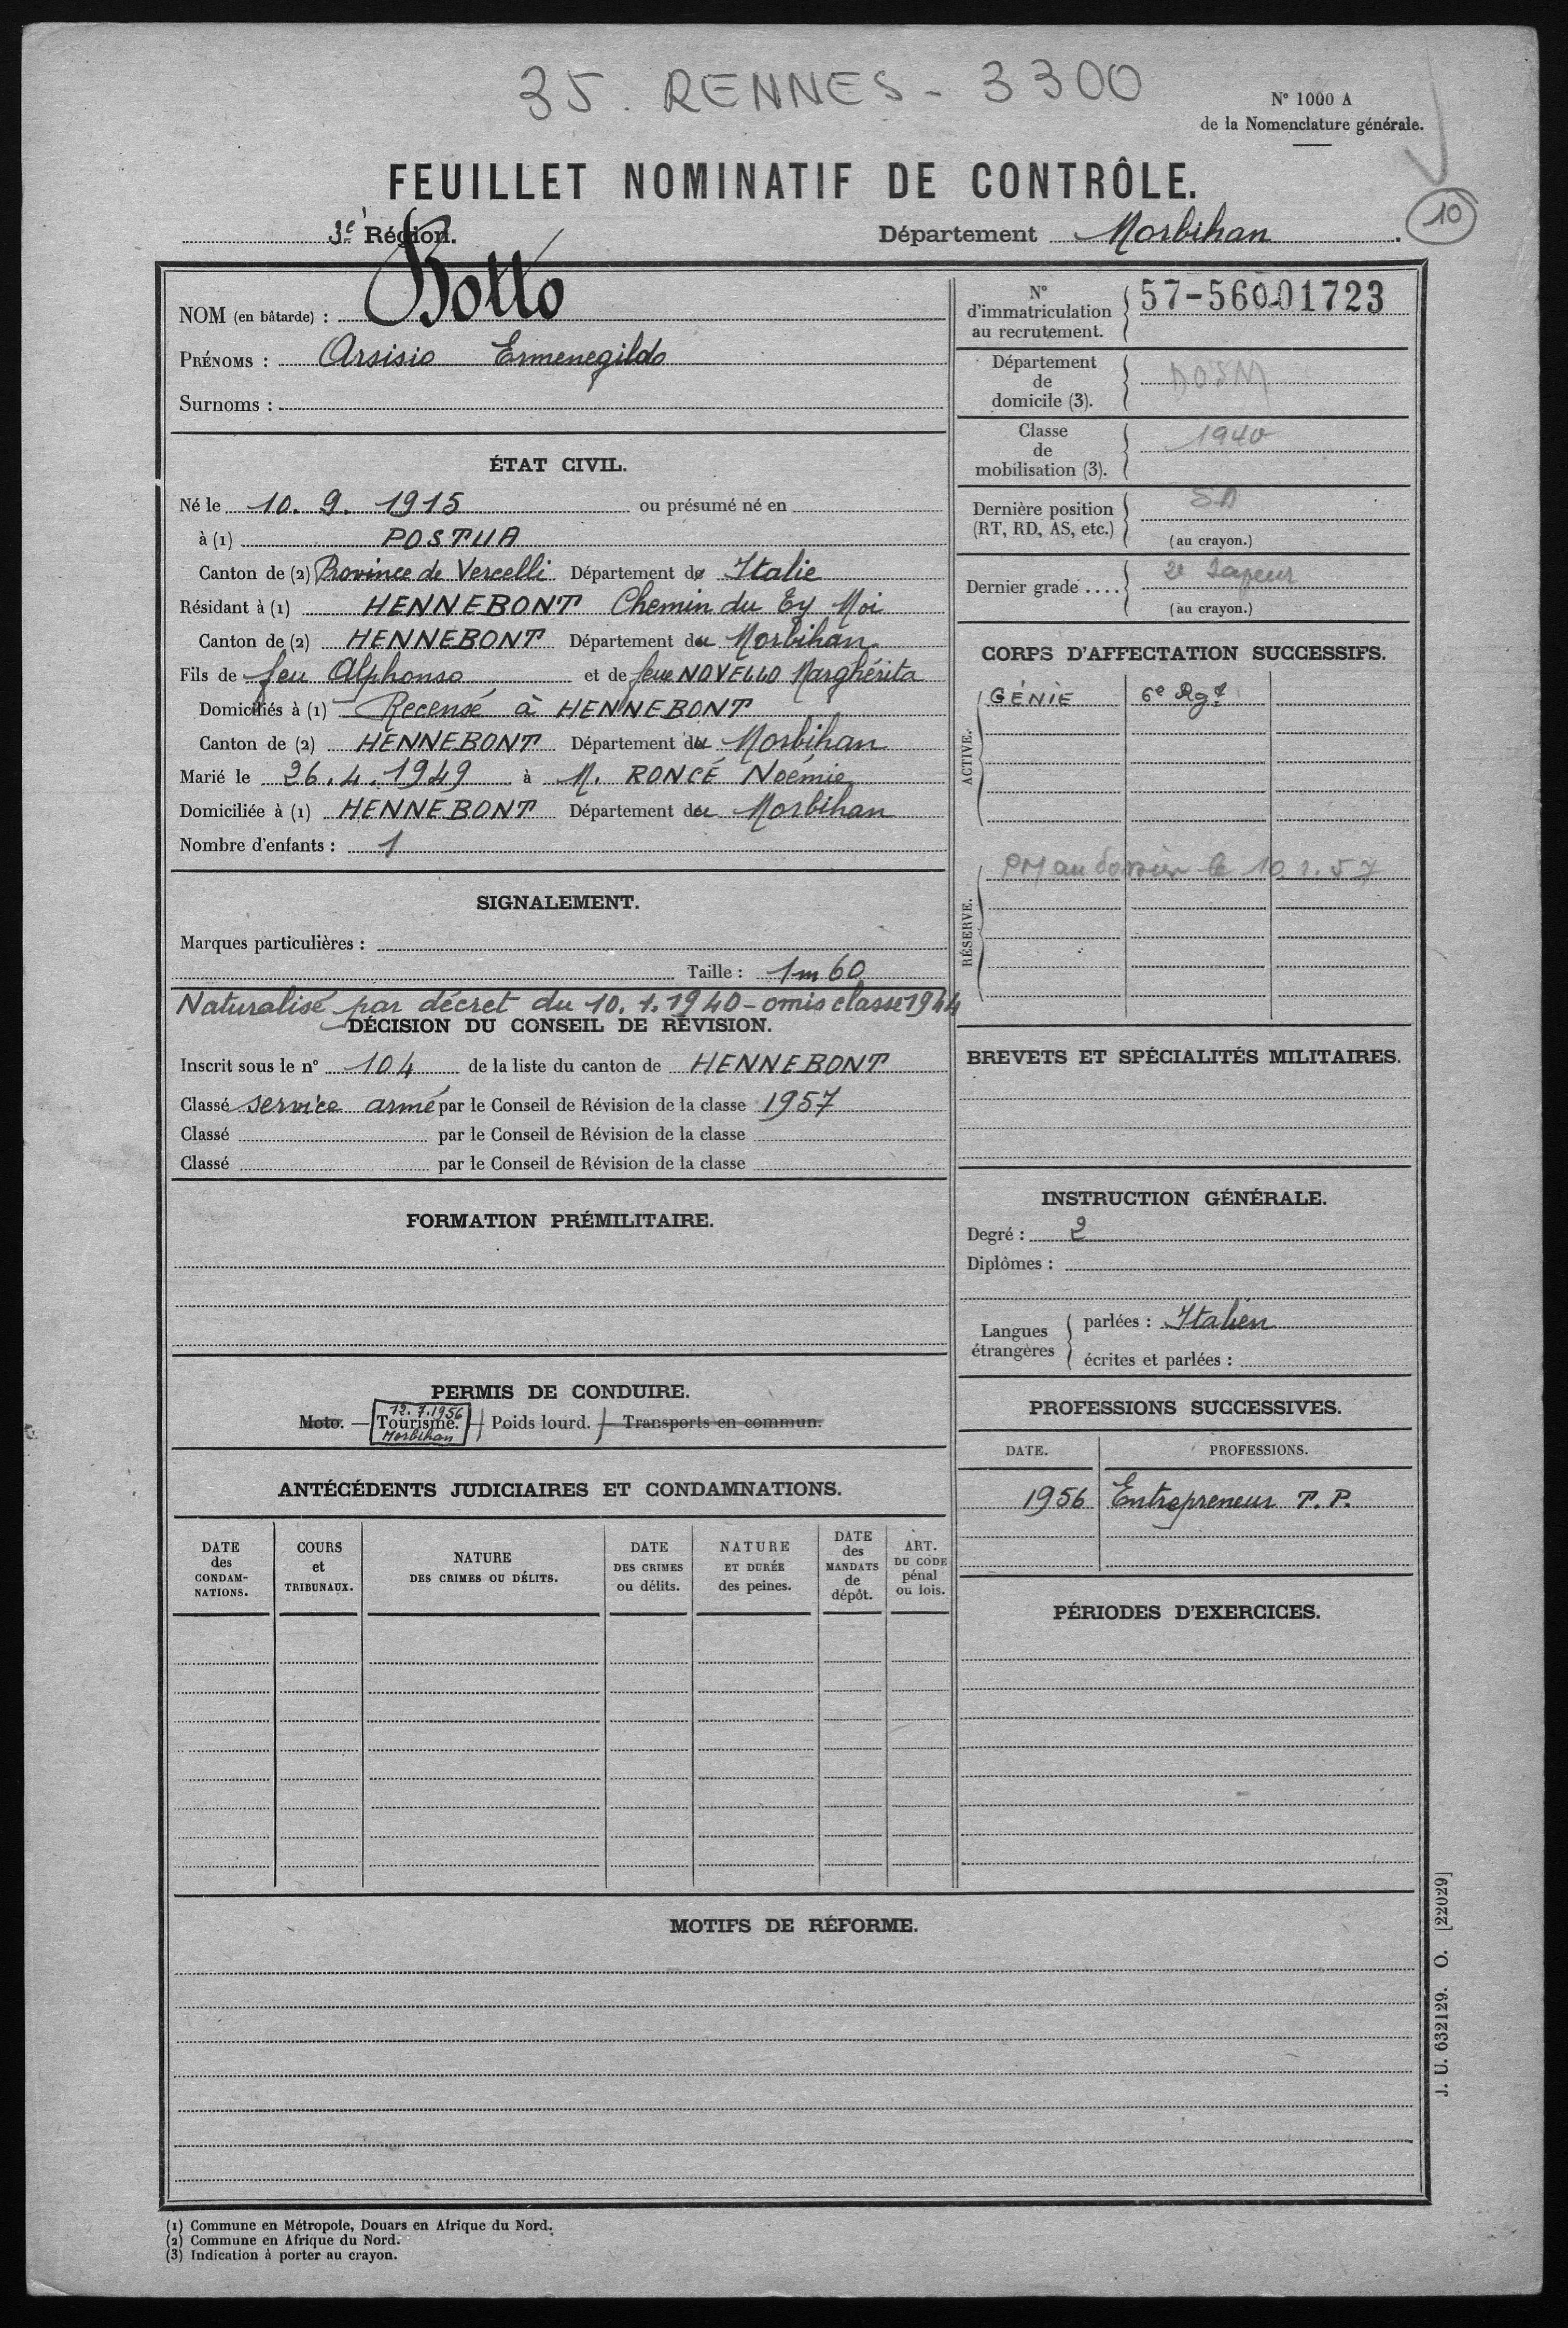 35. RENNES - 3300
N° 1000 A
de la Nomenclature générale.
FEUILLET NOMINATIF DE CONTRÔLE.
10
3e Région.
Département Morbihan.
NOM (en bâtarde) : Botto
PRÉNOMS : Arsisio Ermenegildo
Surnoms :
ÉTAT CIVIL.
Né le 10. 9. 1915 ou présumé né en
à (1) POSTUA
Canton de (2) Province de Vercelli Département de Italie
Résidant à (1) HENNEBONT Chemin du Ty Moi
Canton de (2) HENNEBONT Département du Morbihan
Fils de feu Alphonso et de feue NOVELLO Marghérita
Domiciliés à (1) Recensé à HENNEBONT
Canton de (2) HENNEBONT Département du Morbihan
Marié le 26.4.1949 à M. RONCÉ Noémie
Domiciliée à (1) HENNEBONT Département du Morbihan
Nombre d'enfants : 1
SIGNALEMENT.
Marques particulières :
Taille : 1m60
Naturalisé par décret du 10.1.1940 - omis classe 1944
DÉCISION DU CONSEIL DE RÉVISION.
Inscrit sous le n° 104 de la liste du canton de HENNEBONT
Classé service armé par le Conseil de Révision de la classe 1957
Classé par le Conseil de Révision de la classe
Classé par le Conseil de Révision de la classe
FORMATION PRÉMILITAIRE.
PERMIS DE CONDUIRE.
12.7.1956
Moto. — Tourisme. — Poids lourd. — Transports en commun.
Morbihan
ANTÉCÉDENTS JUDICIAIRES ET CONDAMNATIONS.
DATE des CONDAM-NATIONS.
COURS et TRIBUNAUX.
NATURE DES CRIMES OU DÉLITS.
DATE DES CRIMES ou délits.
NATURE ET DURÉE des peines.
DATE des MANDATS de dépôt.
ART. DU CODE pénal ou lois.
N° d'immatriculation au recrutement. 57-560-01723
Département de domicile (3).
Classe de mobilisation (3). 1940
Dernière position (RT, RD, AS, etc.) SD
(au crayon.)
Dernier grade .... 2e Sapeur
(au crayon.)
CORPS D'AFFECTATION SUCCESSIFS.
ACTIVE.
GÉNIE 6e Rgt
RÉSERVE.
PM au dossier le 10 1. 57
BREVETS ET SPÉCIALITÉS MILITAIRES.
INSTRUCTION GÉNÉRALE.
Degré : 2
Diplômes :
Langues étrangères
parlées : Italien
écrites et parlées :
PROFESSIONS SUCCESSIVES.
DATE. PROFESSIONS.
1956 Entrepreneur T.P.
PÉRIODES D'EXERCICES.
MOTIFS DE RÉFORME.
J. U. 632129. O. [22029]
(1) Commune en Métropole, Douars en Afrique du Nord.
(2) Commune en Afrique du Nord.
(3) Indication à porter au crayon.